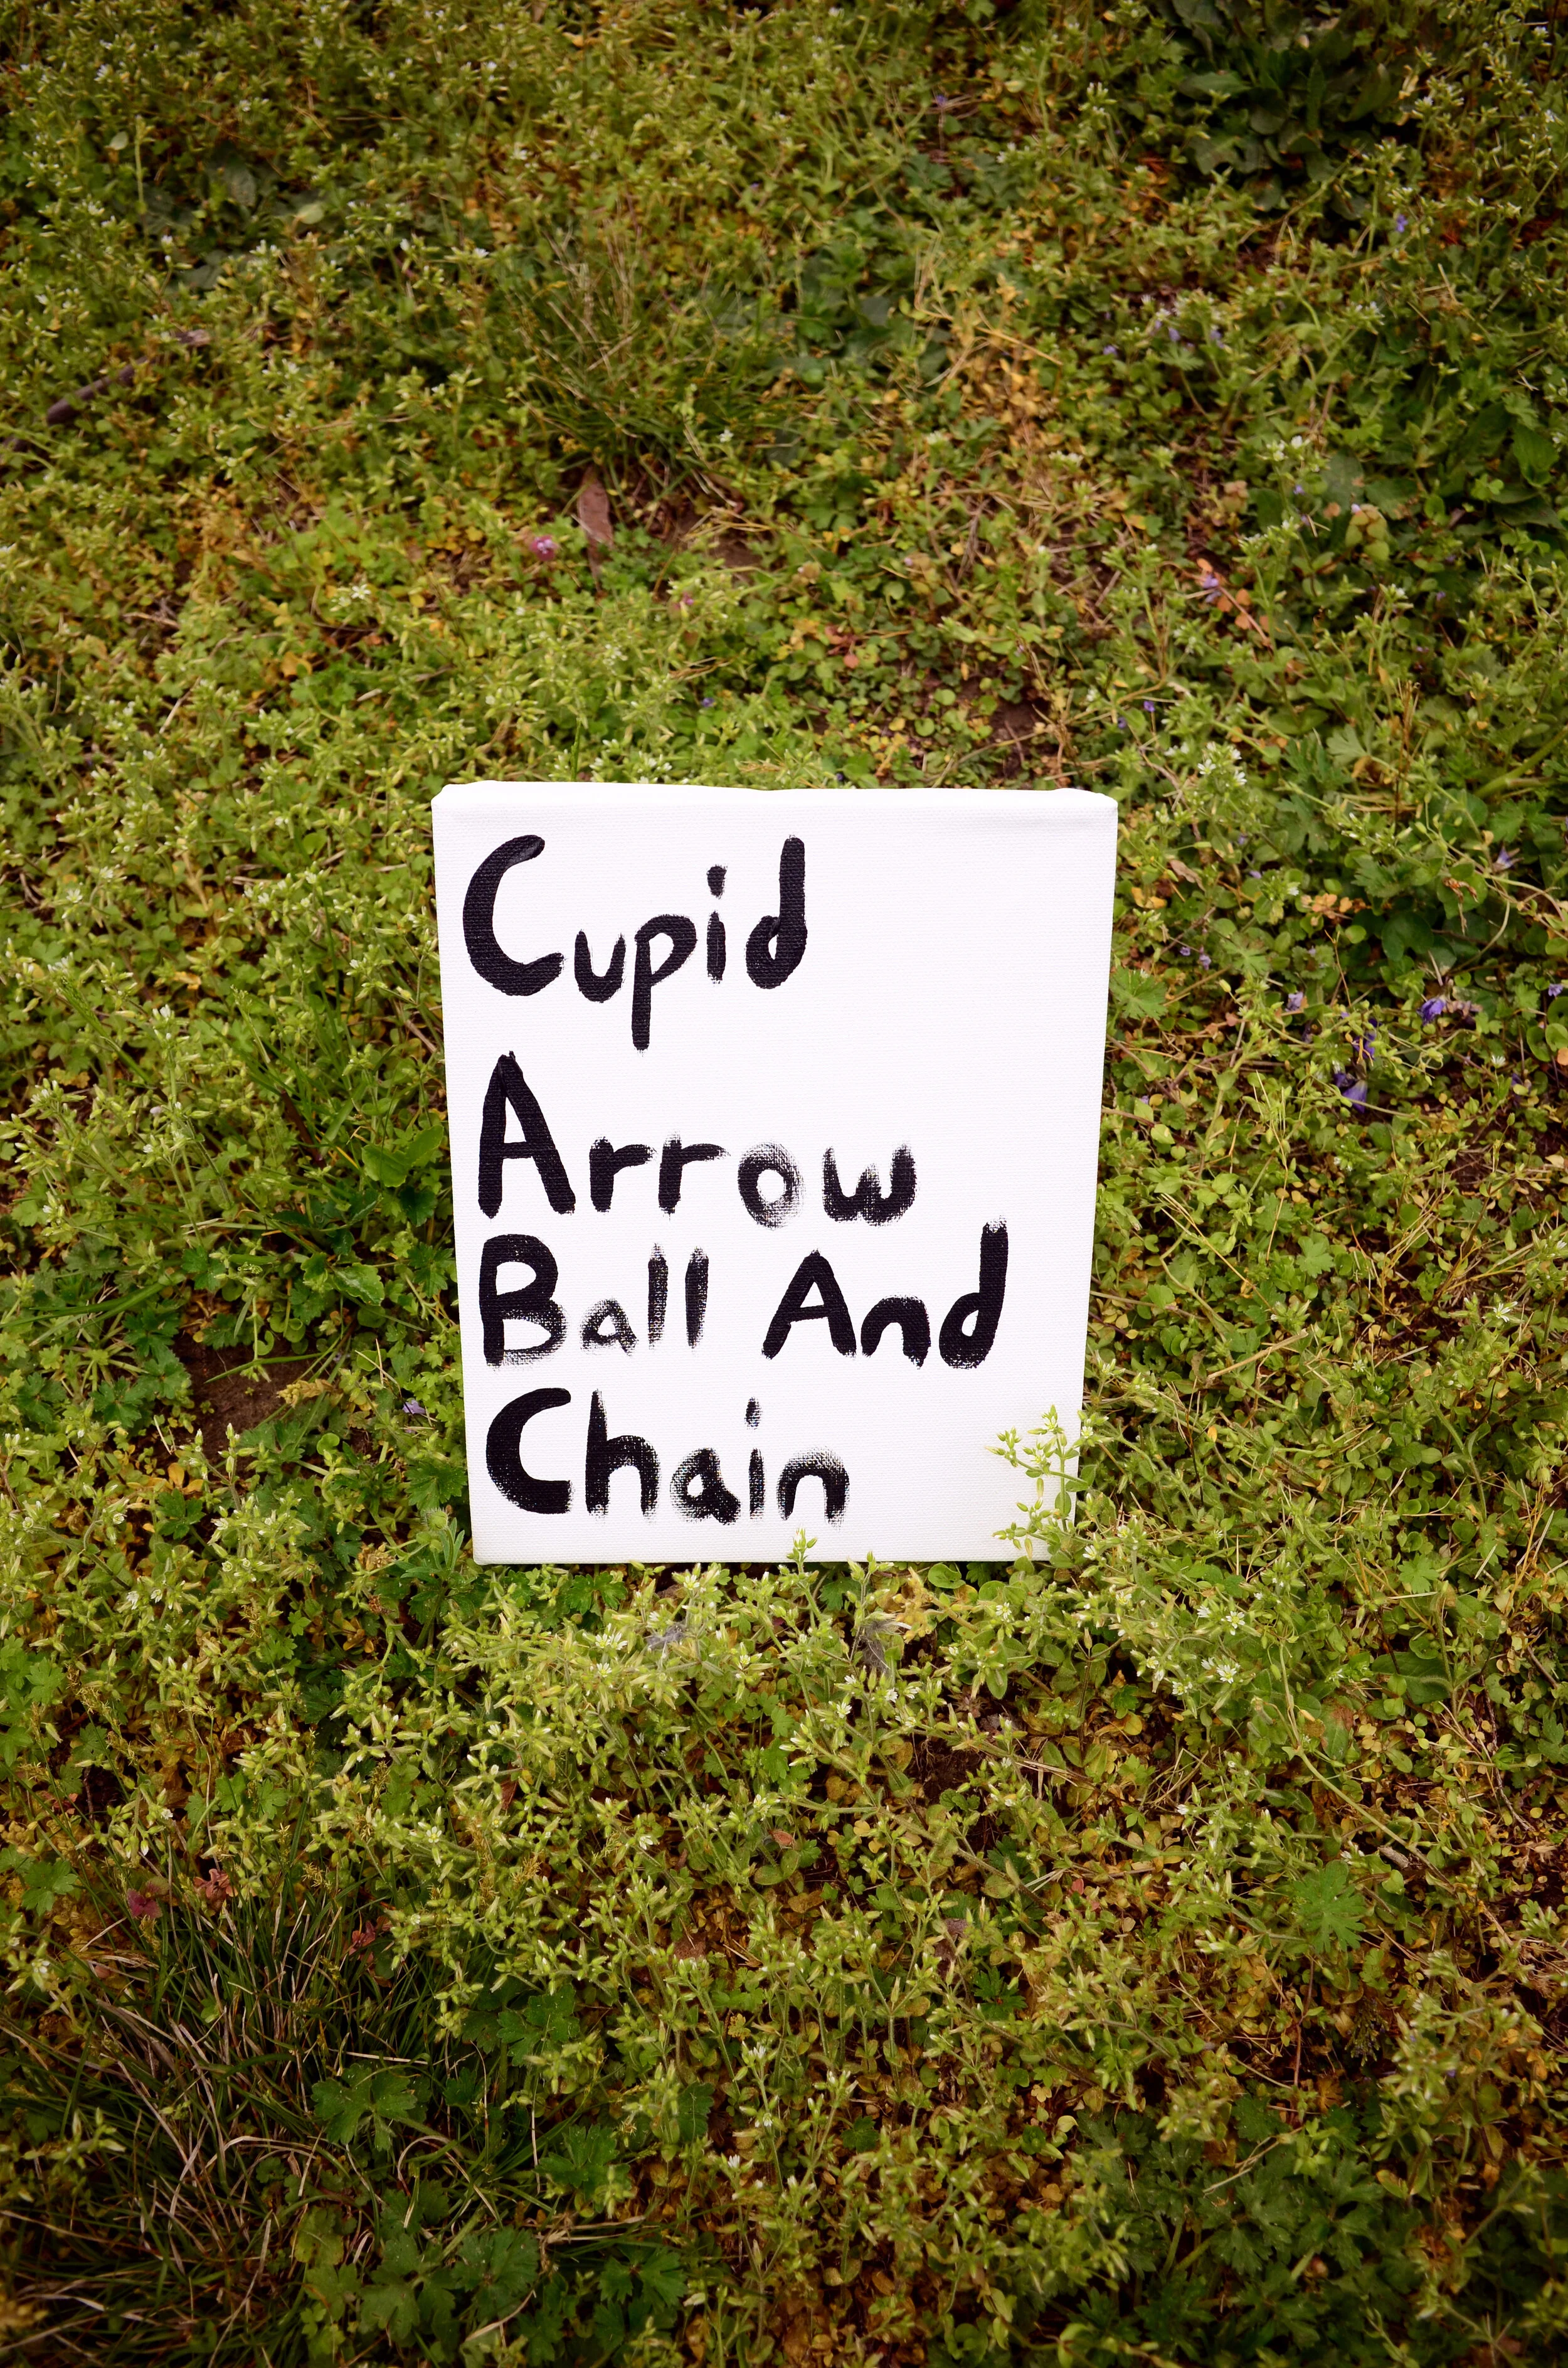 Cupid
Arrow
Ball And
Chain